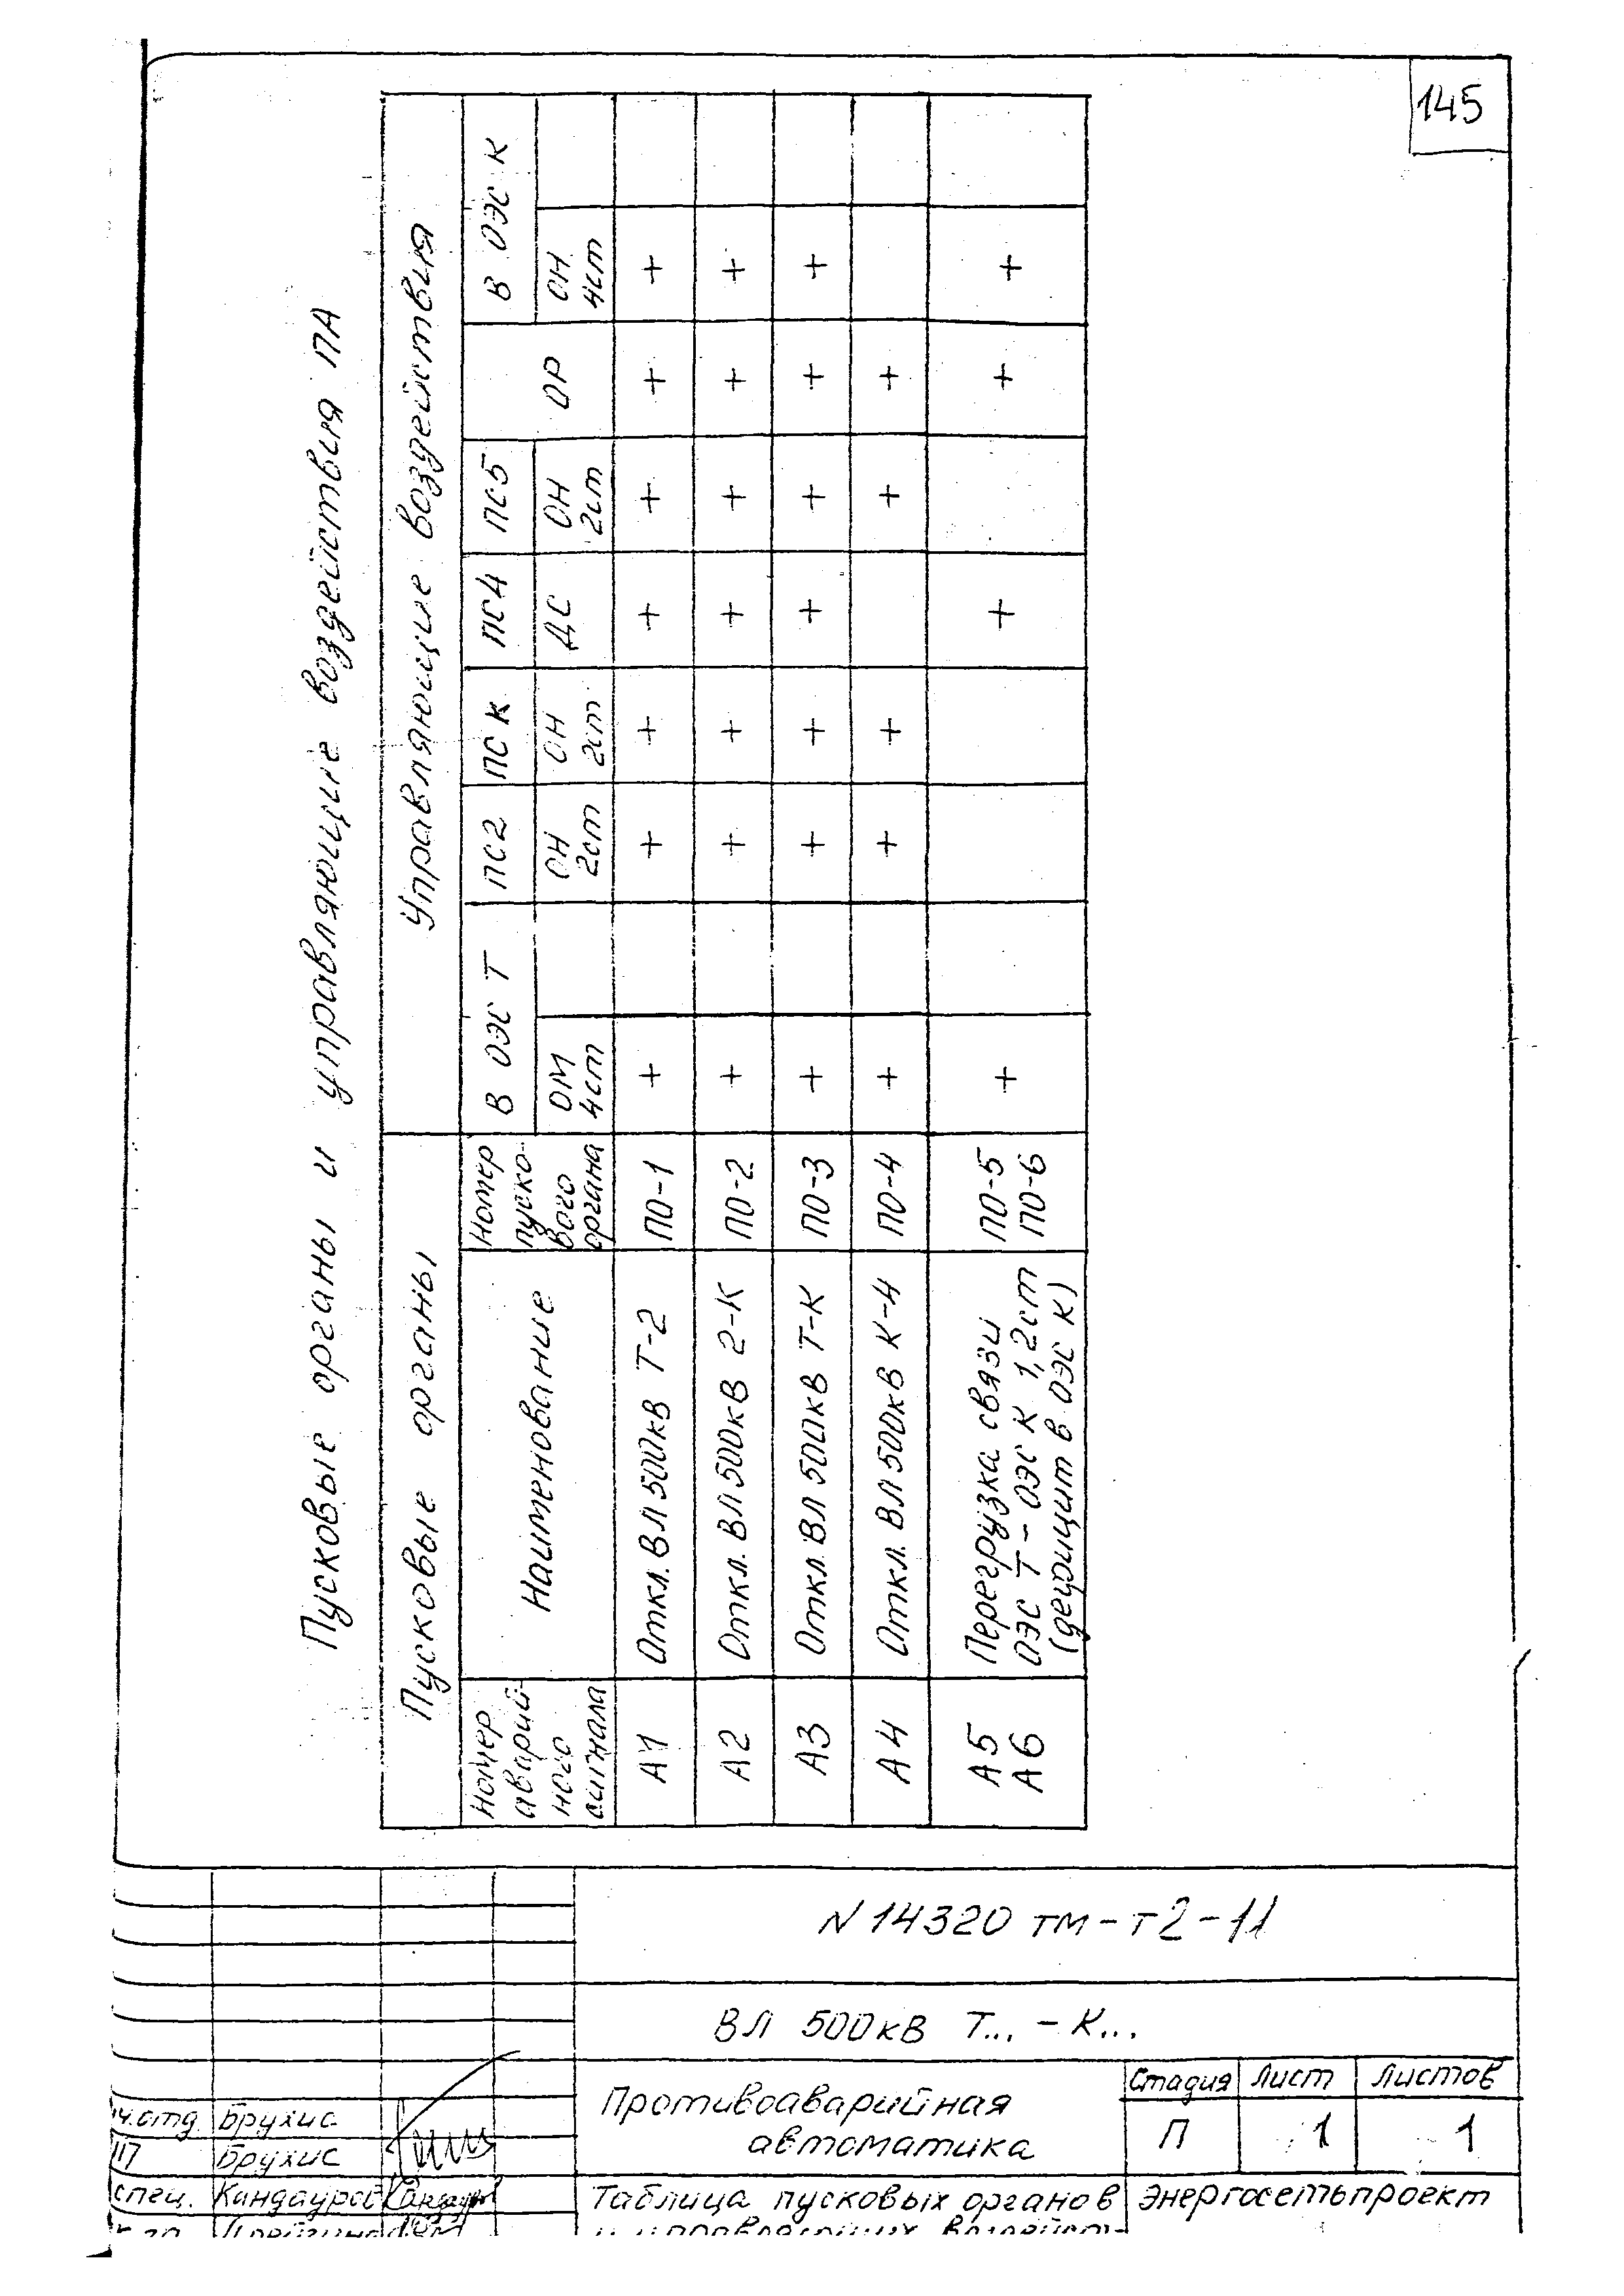 145
Пусковые органы и управляющие воздействия ПА
Пусковые органы
Управляющие воздействия
Номер
аварий-
ного
сигнала
Наименование
Номер
пуско-
вого
органа
В ОЭС Т
ПС2
ПС К
ПС4
ПС5
ОР
В ОЭС К
ОМ
4ст
ОН
2ст
ОН
2ст
ДС
ОН
2ст
ОН
4ст
А1 Откл. ВЛ 500кВ Т-2 ПО-1 + + + + + + +
А2 Откл. ВЛ 500кВ 2-К ПО-2 + + + + + + +
А3 Откл. ВЛ 500кВ Т-К ПО-3 + + + + + + +
А4 Откл. ВЛ 500кВ К-4 ПО-4 + + + + +
А5
А6
Перегрузка связи
ОЭС Т - ОЭС К 1,2ст
(дефицит в ОЭС К)
ПО-5
ПО-6
+ + + +
N 14320 тм-т2-11
ВЛ 500кВ Т... - К...
Противоаварийная
автоматика
Стадия Лист Листов
П 1 1
ч.отд. Брухис
Брухис
спец. Кандауров
Таблица пусковых органов
и управляющих воздейст-
Энергосетьпроект